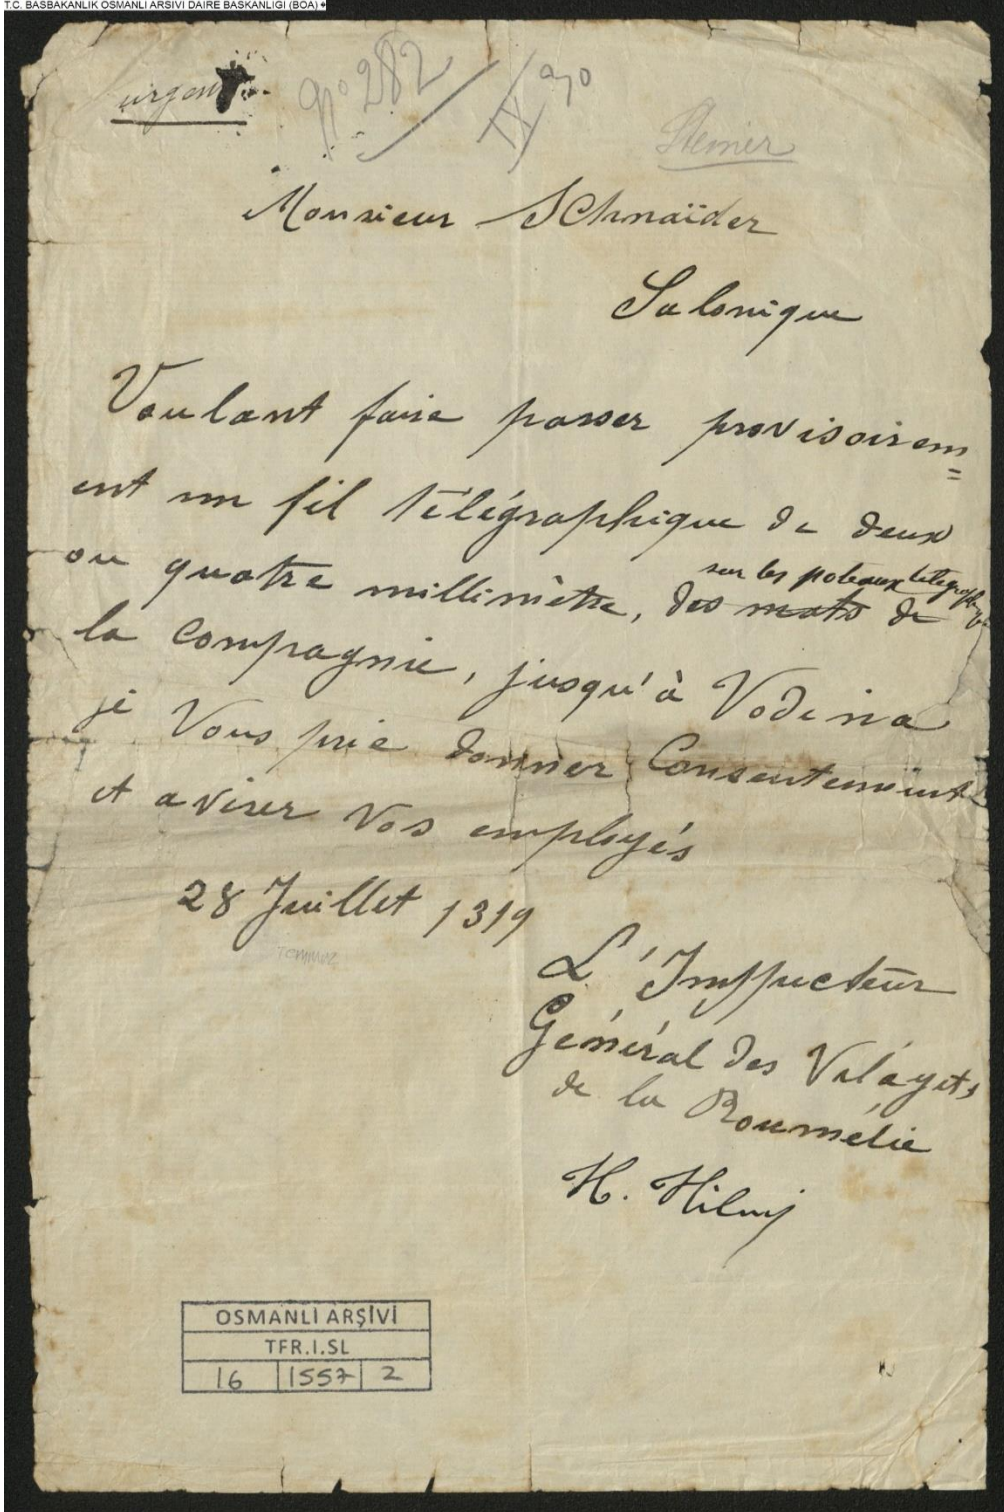 T.C. BASBAKANLIK OSMANLI ARSIVI DAIRE BASKANLIGI (BOA)
urgent
No 282
Monsieur Schnaïder
Salonique
Voulant faire passer provisoirem=
ent un fil télégraphique de deux
sur les poteaux télégraphiques
ou quatre millimètre, des mats de
la Compagnie, jusqu'à Vodina
je Vous prie donner Consentement
et aviser Vos employés
28 Juillet 1319
L'Inspecteur
Général des Vilayets
de la Roumélie
H. Hilmi
OSMANLI ARŞİVİ
TFR.I.SL
16 1557 2